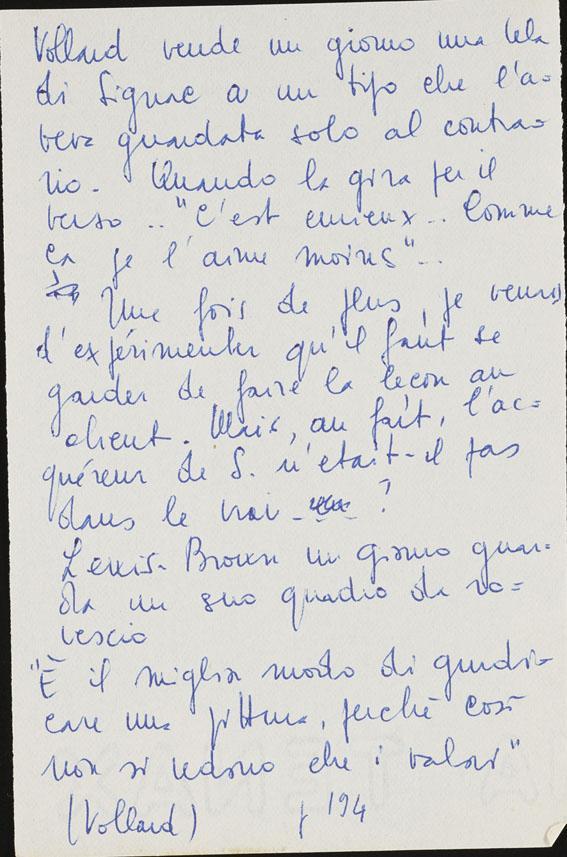 Vollard vende un giorno una tela
di Signac a un tipo che l'a=
veva guardata solo al contra=
rio. Quando la gira per il
verso .. "C'est curieux .. Comme
ça je l'aime moins" ..
Une fois de plus, je venais
d'expérimenter qu'il faut se
garder de faire la leçon au
client. Mais, au fait, l'ac=
quéreur de S. n'etait-il pas
dans le vrai ?
Lewis-Brown un giorno guar-
da un suo quadro da ro=
vescio
"È il miglior modo di giudi-
care una pittura, perché così
non si vedono che i valori"
(Vollard) p 194